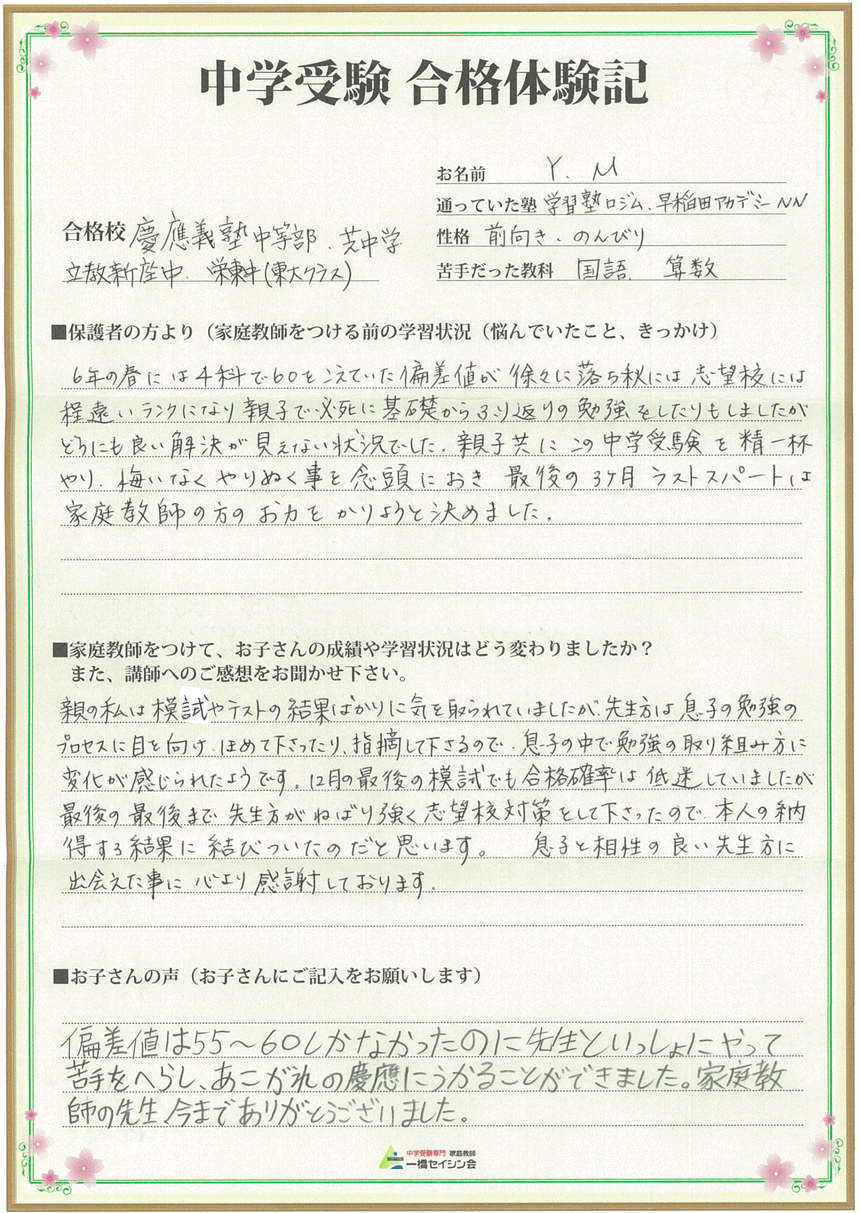 中学受験 合格体験記
お名前 Y. M
通っていた塾 学習塾ロジム、早稲田アカデミーNN
性格 前向き、のんびり
苦手だった教科 国語、算数
合格校 慶應義塾中等部、芝中学
立教新座中、栄東中(東大クラス)
■保護者の方より（家庭教師をつける前の学習状況（悩んでいたこと、きっかけ）
6年の春には4科で60をこえていた偏差値が徐々に落ち秋には志望校には
程遠いランクになり親子で必死に基礎からふり返りの勉強をしたりもしましたが
どうにも良い解決が見えない状況でした。親子共にこの中学受験を精一杯
やり、悔いなくやりぬく事を念頭におき最後の3ヶ月ラストスパートは
家庭教師の方のお力をかりようと決めました。
■家庭教師をつけて、お子さんの成績や学習状況はどう変わりましたか？
また、講師へのご感想をお聞かせ下さい。
親の私は模試やテストの結果ばかりに気を取られていましたが、先生方は息子の勉強の
プロセスに目を向け、ほめて下さったり、指摘して下さるので、息子の中で勉強の取り組み方に
変化が感じられたようです。12月の最後の模試でも合格確率は低迷していましたが
最後の最後まで先生方がねばり強く志望校対策をして下さったので、本人の納
得する結果に結びついたのだと思います。 息子と相性の良い先生方に
出会えた事に心より感謝しております。
■お子さんの声（お子さんにご記入をお願いします）
偏差値は55～60しかなかったのに先生といっしょにやって
苦手をへらし、あこがれの慶應にうかることができました。家庭教
師の先生、今までありがとうございました。
中学受験専門 家庭教師
一橋セイシン会